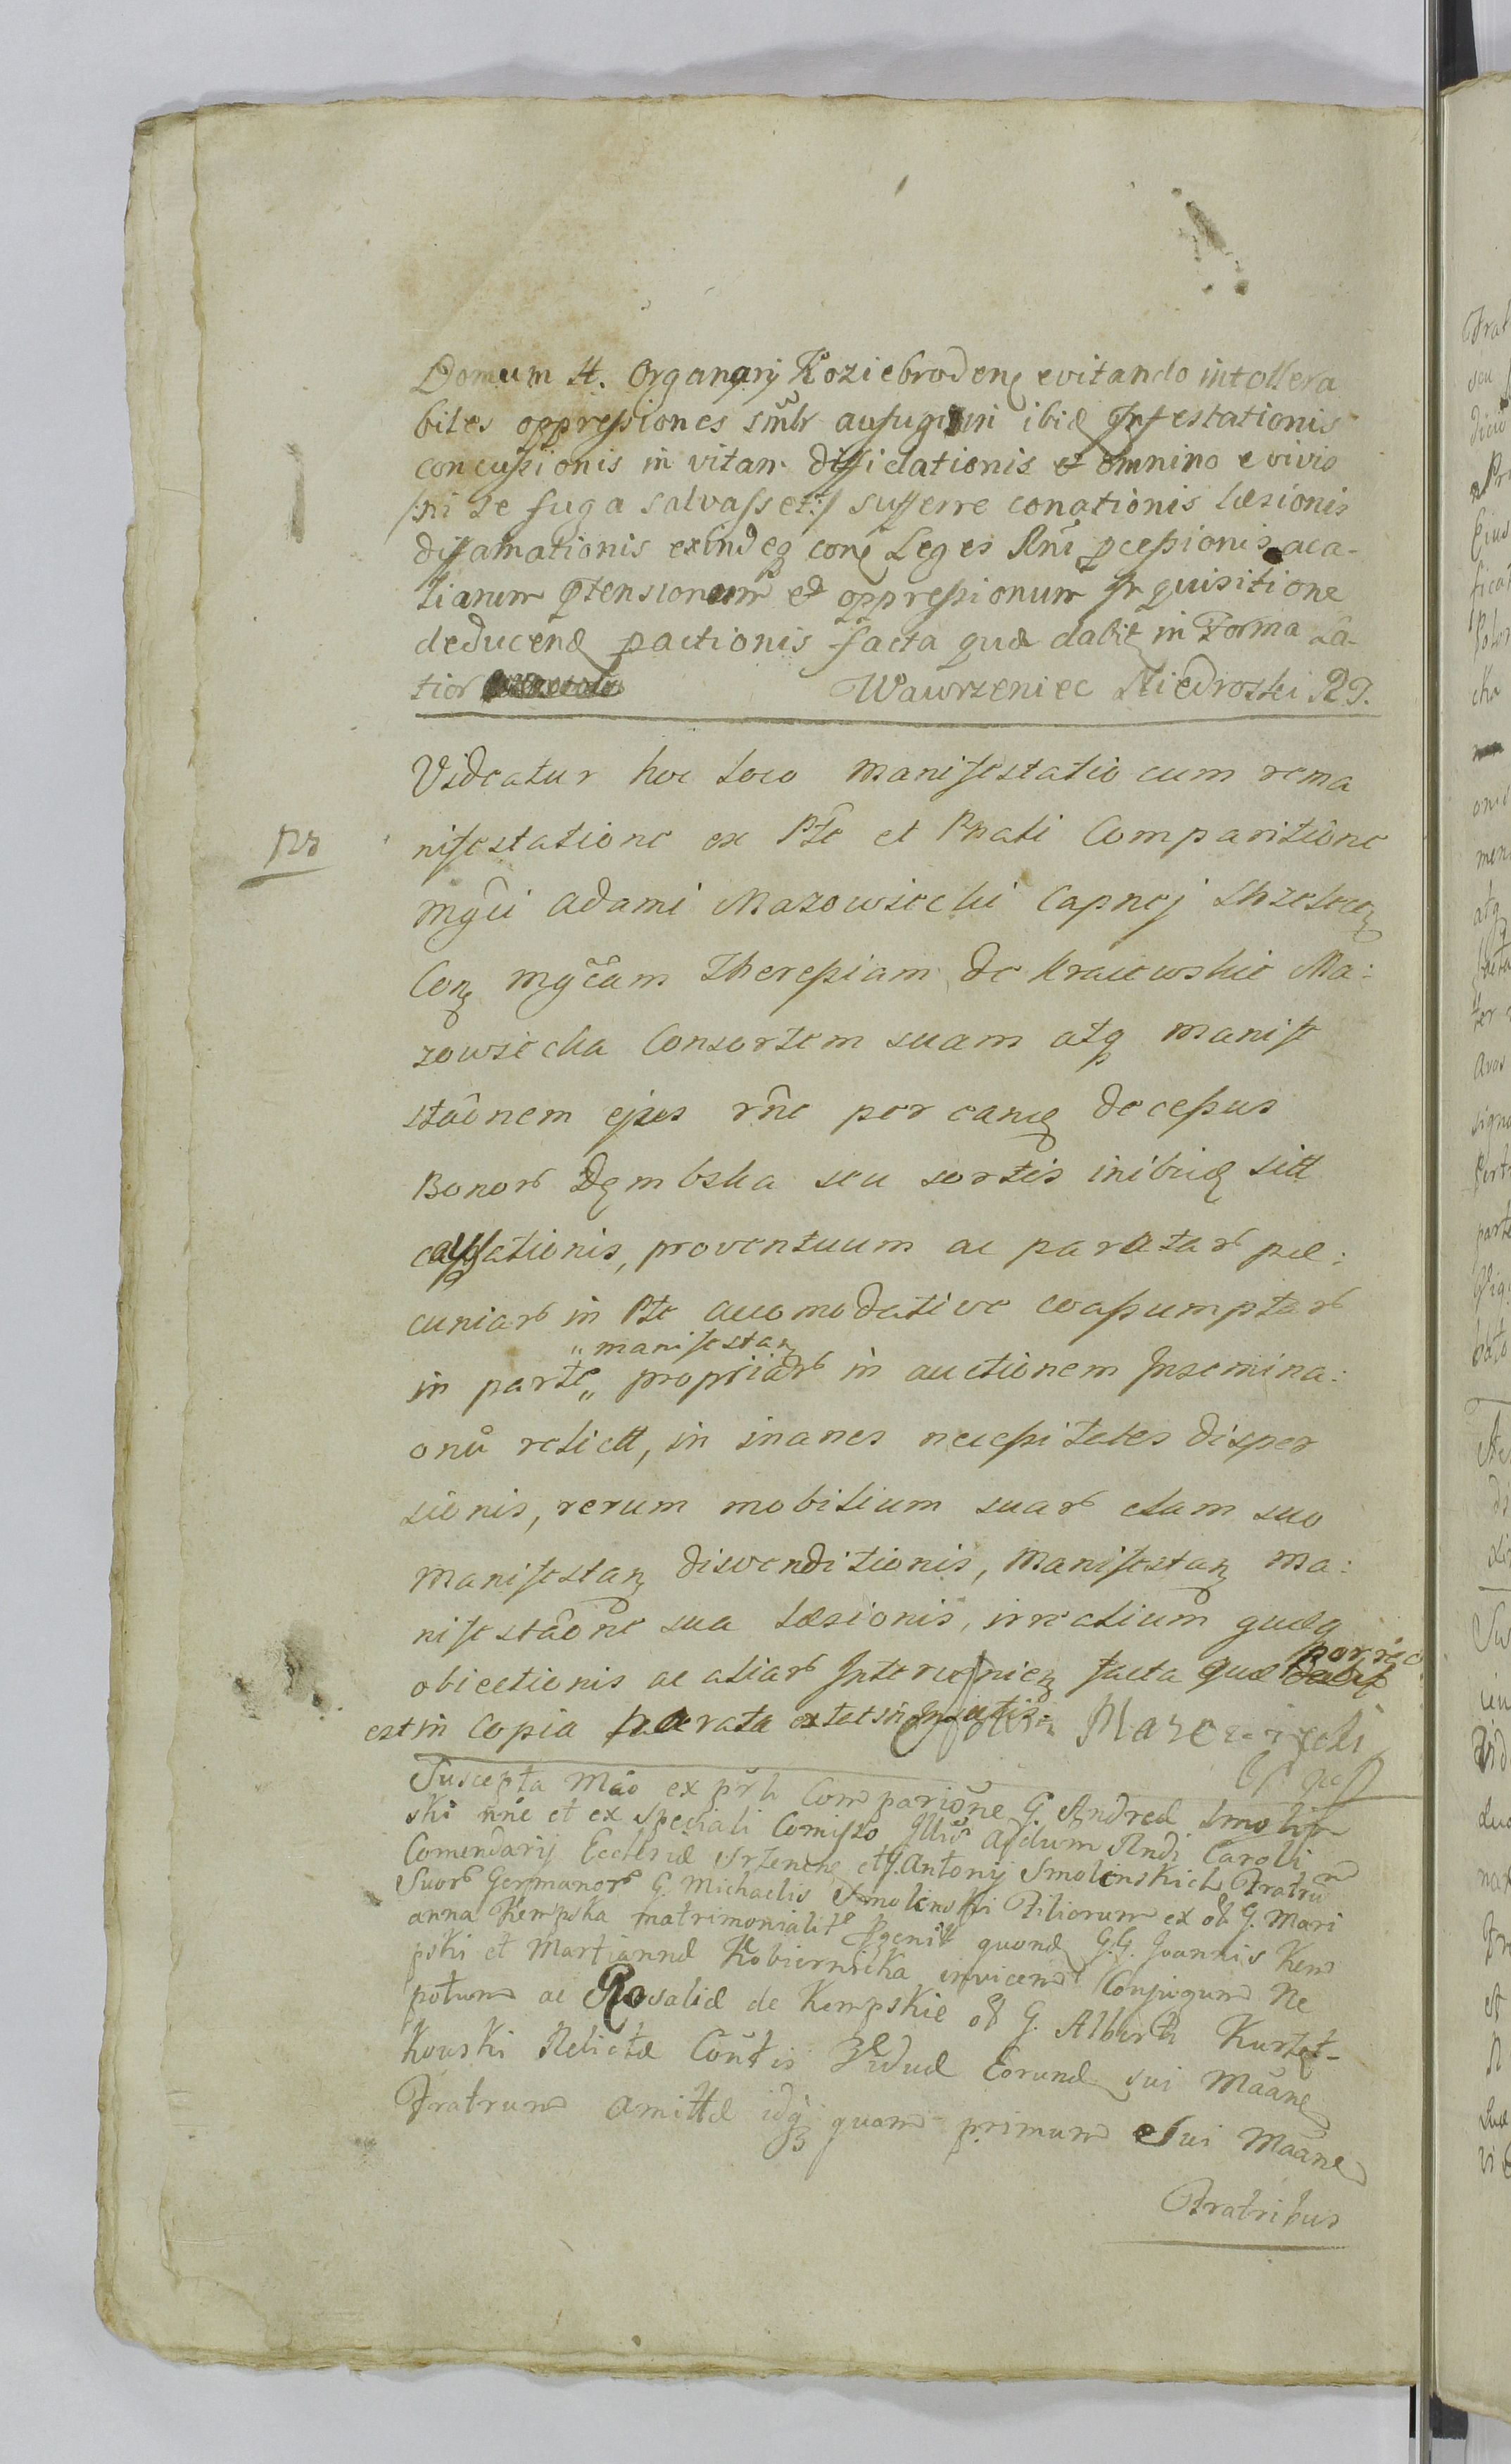 Domum H. Organarij Koziebroden evitando intollera
biles oppressiones smlr aufugium ibid Infestationis
concussionis in vitam diffidationis et omnino e vivis
/:ni se fuga salvasset:/ sufferre conationis læsionis
diffamationis exindeq con Leges Rni pcessionis ac a-
liarum ptensionum et oppressionum Inquisitione
deducend pactionis facta quæ dabit in Forma La-
tior Wawrzeniec Niedroski
Videatur hoc loco Manifestatio cum rema
nifestatione ex Pte et Pnali Comparitione
Mgci Adami Mazowiecki Capnej
Con Mgcam Theressiam de Kraiewskie Ma:
zowiecka Consortem suam atq Manife
stãonem ejus rne per eand decessus
Bonor Dembska seu sortis inibiq sitt
cassationis, proventuum ac paratar pe:
cuniar in Pte accomodative coassumptar
manifestan
in parte propriar in auctionem Insemina:
onũ relictt, in inanes necessitates disper
sionis, rerum mobilium suar clam suo
Manifestan disvenditionis, Manifestan Ma:
nifestãone sua læsionis, irrealium quæq
obiectionis ac aliar Intervenien facta quæ porrec
est in Copia parata extat in Mazowiecki
Suscepta Mão ex psli Comparitione G. Andreæ Smolin
ski nne et ex speciali Comisso Illior Addum Rndi Caroli
Comendarij Ecclesiæ et G. Antonij Smolenskich Fratrũ
Suor Germanor G. Michaelis Smolenski Filiorum ex ol G. Mari
anna Kempska matrimonialite pgenit quond G.G. Joannis Kem
pski et Mariannæ Kobiernicka invicem Conjugum Ne
potum ac Rosaliæ de Kempskie ol G. Alberti
kowski Relictæ Contis Viduæ Eorund sui Maane
Fratrum Amittæ idq quam primum Sui Maane
Fratribus